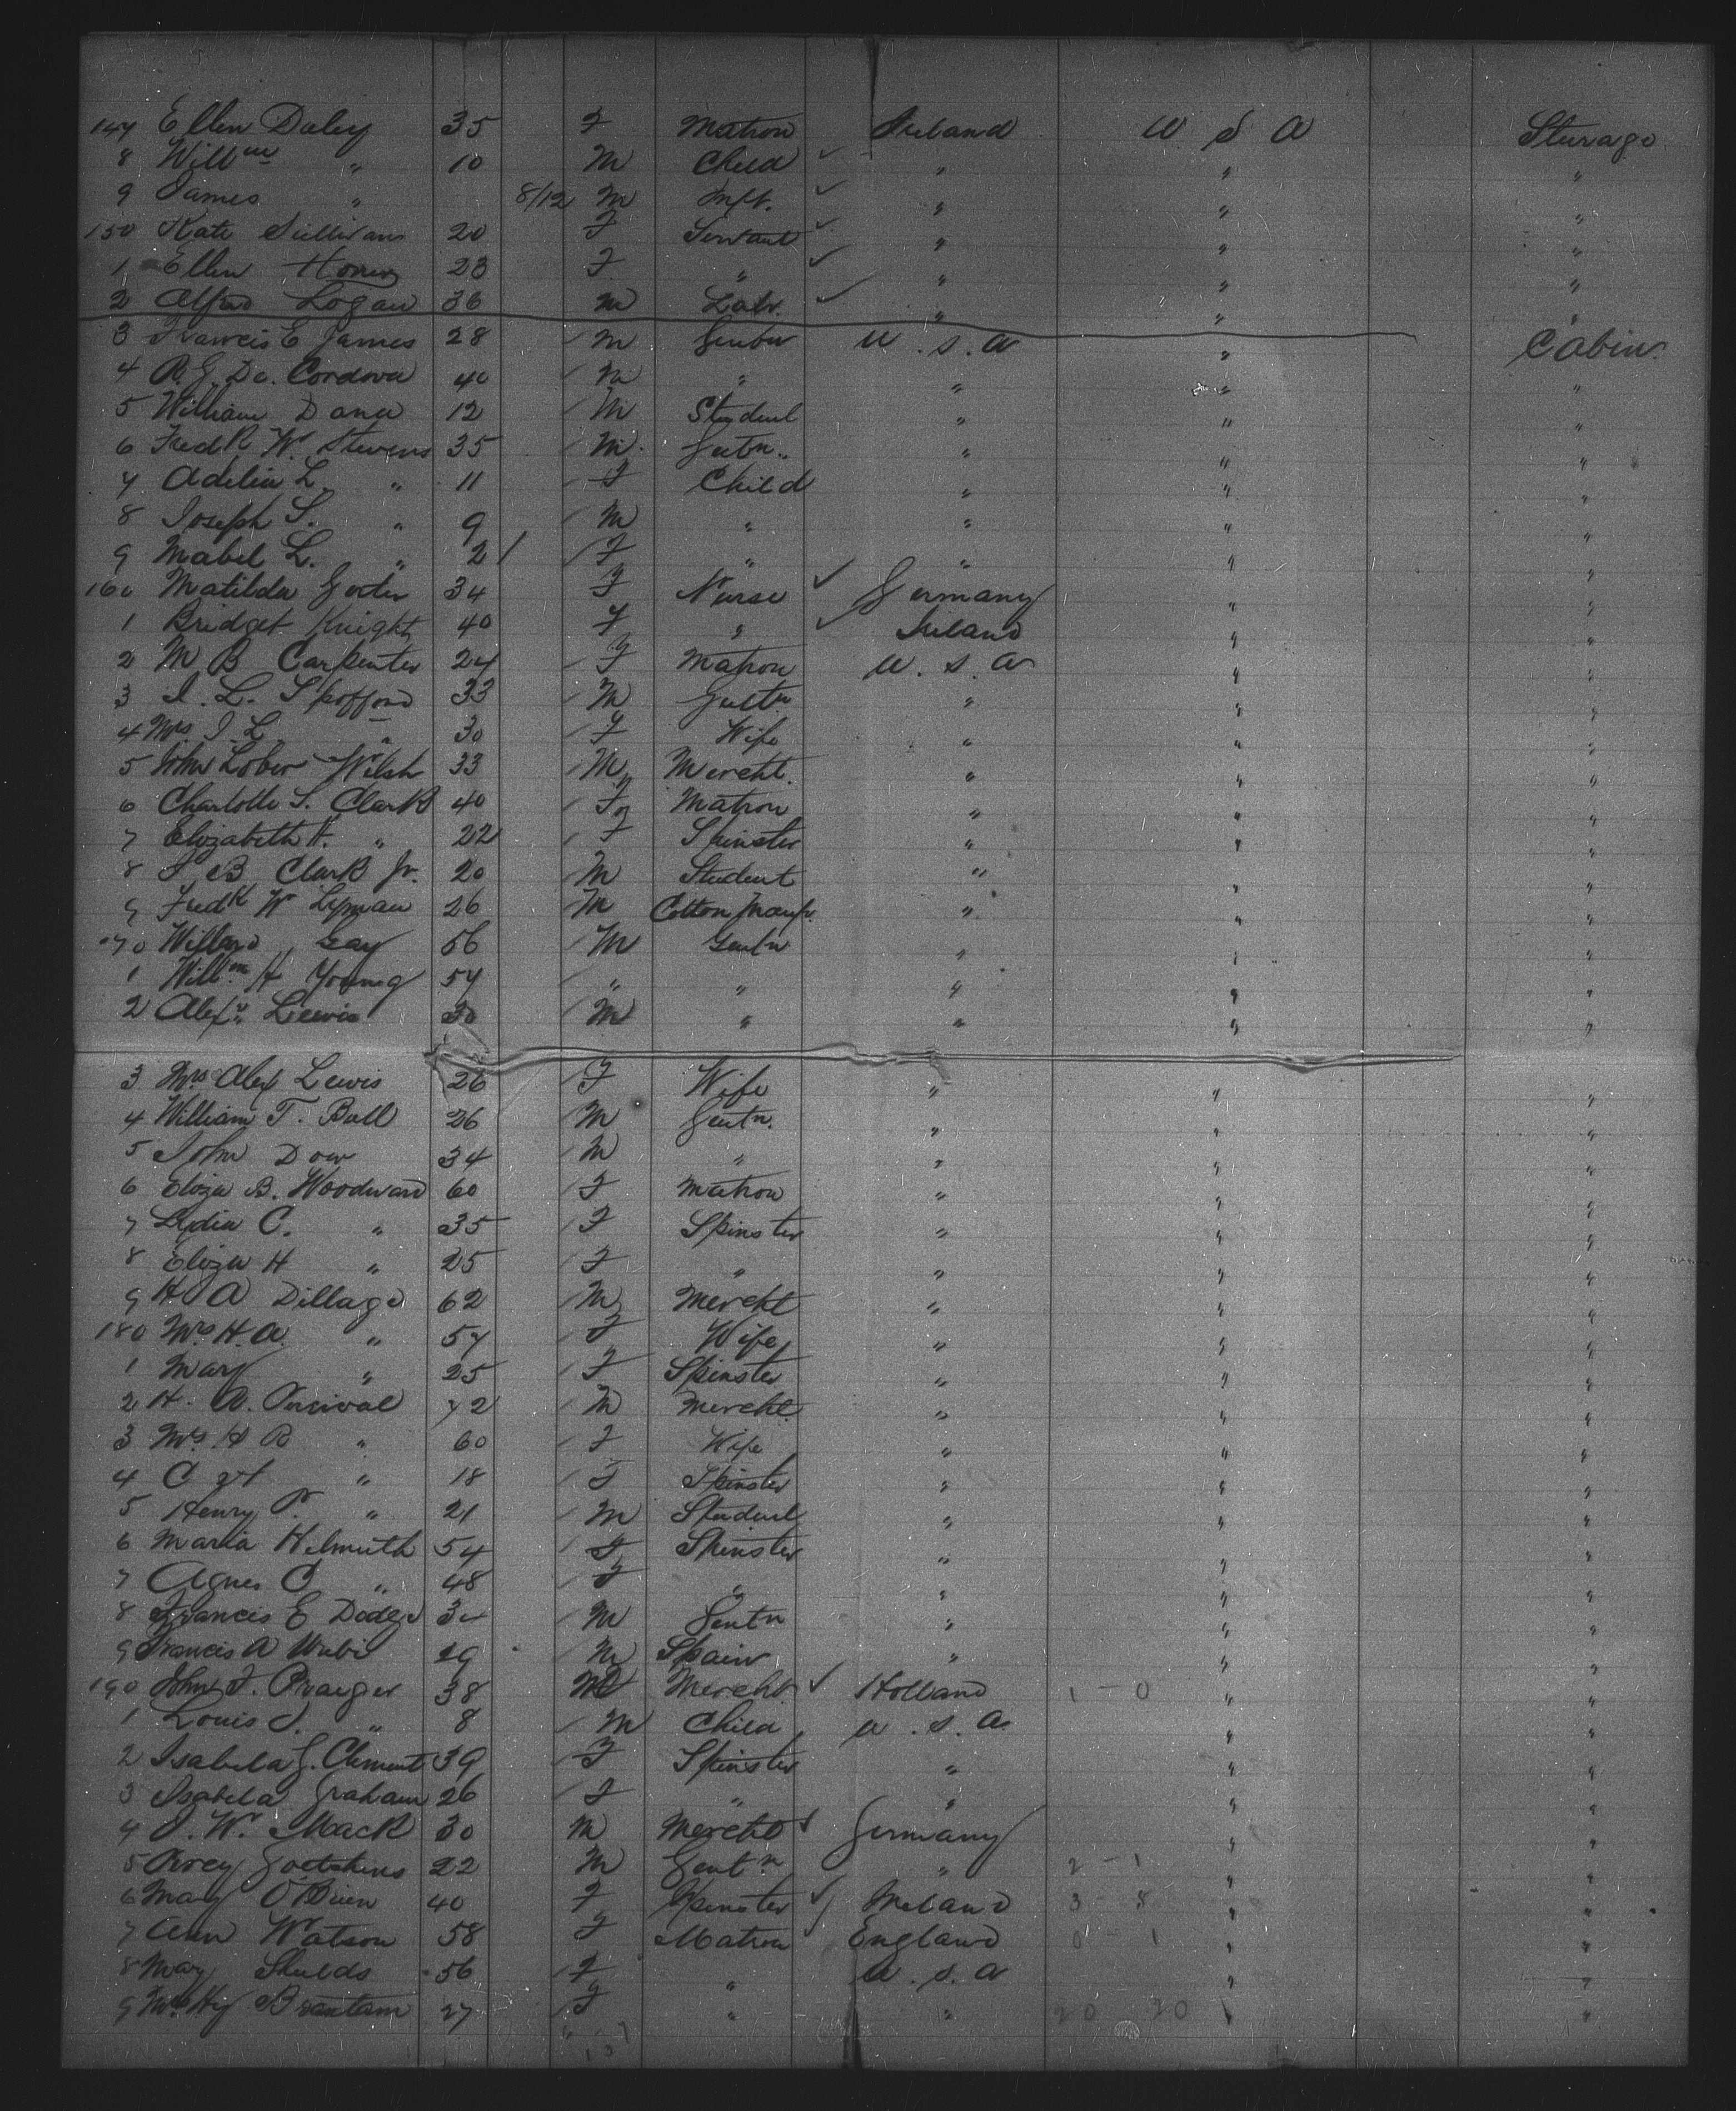 147 Ellen Daley 35 F Matron Ireland U S A Steerage
8 Willm " 10 M Child ✓ " " "
9 James " 8/12 M Inft. ✓ " " "
150 Kate Sullivan 20 F Servant ✓ " " "
1 Ellen 23 F " ✓ " " "
2 Alfred Logan 36 M Labr. ✓ " " "
3 Francis E James 28 M Gentn U.S.A " Cabin
4 R. J. De. Cordova 40 M " " " "
5 William Dana 12 M Student " " "
6 Fredk W. Stevens 35 M Gentn. " " "
7 Adelia L. " 11 F Child " " "
8 Joseph S. " 9 M " " " "
9 Mabel L. " 2 F " " " "
160 Matilda 34 F Nurse ✓ Germany " "
1 Bridget Knight 40 F " ✓ Ireland " "
2 M B Carpenter 24 F Matron U.S.A " "
3 I. L. Spofford 33 M Gentn " " "
4 Mrs I. L. " 30 F Wife " " "
5 John Lober Welsh 33 M Mercht. " " "
6 Charlotte S. Clark 40 F Matron " " "
7 Elizabeth H. " 22 F Spinster " " "
8 S B Clark Jr. 20 M Student " " "
9 Fredk W Lyman 26 M Cotton Manfr. " " "
170 Willard Gay 56 M Gentn " " "
1 Willm H Young 57 " " " " "
2 Alexr. Lewis 30 M " " " "
3 Mrs Alex Lewis 26 F Wife " " "
4 William T. Ball 26 M Gentn. " " "
5 John Dow 34 M " " " "
6 Eliza B. Woodward 60 F Matron " " "
7 Lydia C. " 35 F Spinster " " "
8 Eliza H " 25 F " " " "
9 H A Dillage 62 M Mercht " " "
180 Mrs H. A. " 57 F Wife " " "
1 Mary " 25 F Spinster " " "
2 H. R. Percival 72 M Mercht. " " "
3 Mrs H R " 60 F Wife " " "
4 C " 18 F Spinster " " "
5 Henry P. " 21 M Student " " "
6 Maria Helmuth 54 F Spinster " " "
7 Agnes C " 48 F " " " "
8 Francis E Dodge M Gentn " " "
9 Francis A 29 M Spain " " "
190 John I. Praeger 38 M Mercht ✓ Holland 1 - 0 " "
1 Louis I. " 8 M Child U.S.A. " "
2 Isabela J. Clement 39 F Spinster " " "
3 Isabela Graham 26 F " " " "
4 J. W. Mack 30 M Mercht ✓ Germany " "
5 22 M Gentn " 2 - 1 " "
6 Mary O'Brien 40 F Spinster ✓ Ireland 3 - 8 " "
7 Ann Watson 58 F Matron ✓ England 0 - 1 " "
8 Mary Shields 56 F " U.S.A " "
9 Mrs Hy Brantam 27 F " " 20 20 " "